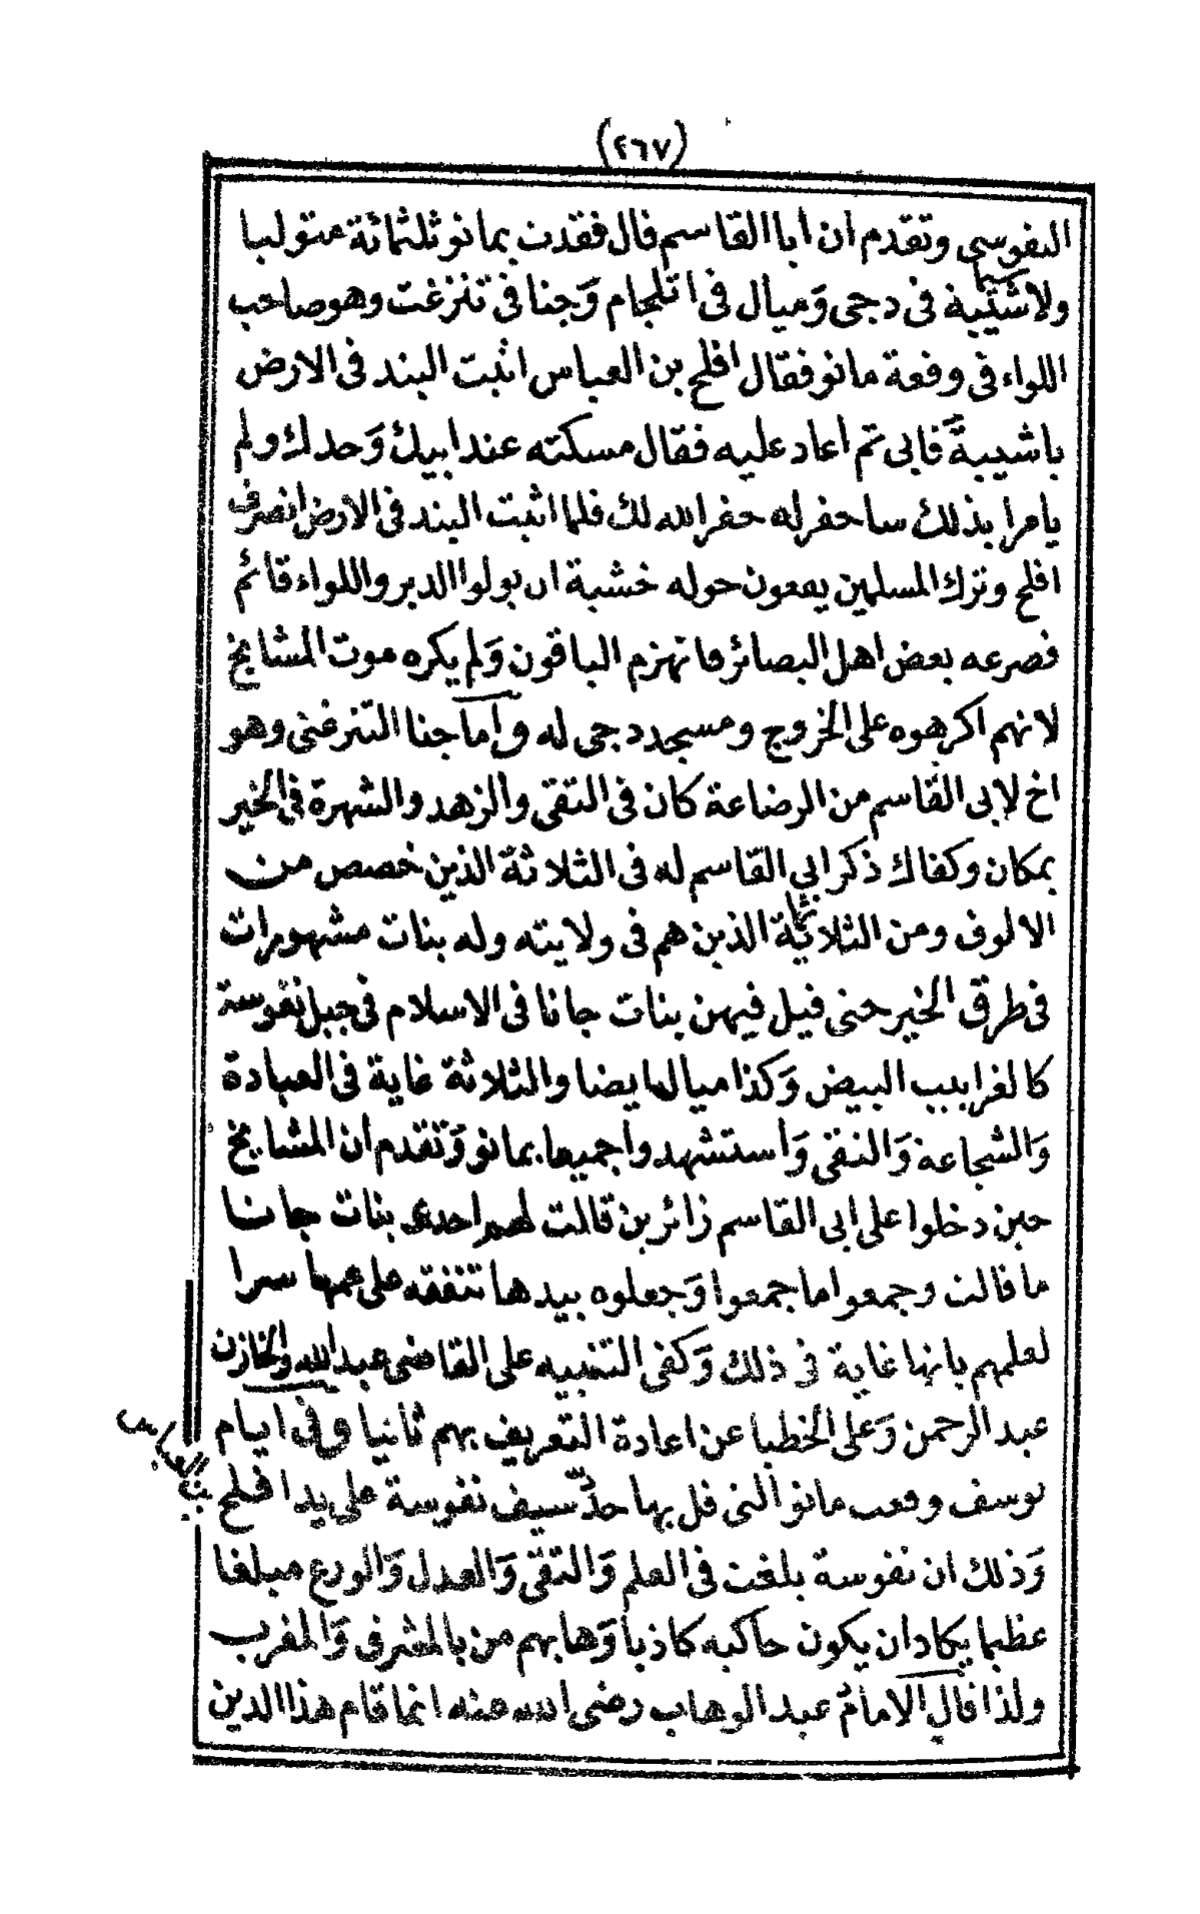 (٢٦٧)
النفوسي وتقدم أن أبا القاسم قال فقدت بمانو ثلثمائة متوليا
ولا شيبة في دجى وميال في اتلجام وَجنا في تنزغت وهو صاحب
اللواء في وقعة مانو فقال افلح بن العباس اثبت البند في الارض
ياشيبة فابى ثم اعاد عليه فقال مسكته عند ابيك وَجدك ولم
يامرا بذلك ساحفر له حفر الله لك فلما اثبت البند في الارض انصرف
افلح وترك المسلمين يقعون حوله خشية ان يولوا الدبر واللواء قائم
فصرعه بعض اهل البصائر فانهزم الباقون وَلم يكره موت المشايخ
لانهم اكرهوه على الخروج ومسجد دجى له وأما جنا التنزغتى وهو
اخ لابى القاسم من الرضاعة كان في التقى والزهد والشهرة في الخير
بمكان وكفاك ذكر ابي القاسم له في الثلاثة الذين خصص من
الالوف ومن الثلاثمائة الذين هم في ولايته وله بنات مشهورات
في طرق الخير حتى قيل فيهن بنات جانا في الاسلام في جبل نفوسة
كالغرابيب البيض وَكذا ميال ايضا والثلاثة غاية في العبادة
وَالشجاعة وَالتقى وَاستشهدوا جميعا بمانو وَتقدم أن المشايخ
حين دخلوا على ابى القاسم زائرين قالت لهم احدى بنات جانا
ما قالت وجمعوا ما جمعوا وَجعلوه بيدها تنفقه على عمها سرا
لعلمهم بانها غاية في ذلك وَكفى التنبيه على القاضى عبد الله والخازن
عبد الرحمن وَعلى الخطبا عن اعادة التعريف بهم ثانيا وفي ايام
يوسف وقعت مانو التى فل بها حدّ سيف نفوسة على يد افلح
بن العباس
وَذلك ان نفوسة بلغت في العلم وَالتقى وَالعدل وَالورع مبلغا
عظيما يكاد ان يكون حاكيه كاذبا وَهابهم من بالمشرق وَالمغرب
ولذا قال الامام عبد الوهاب رضى الله عنه انما قام هذا الدين